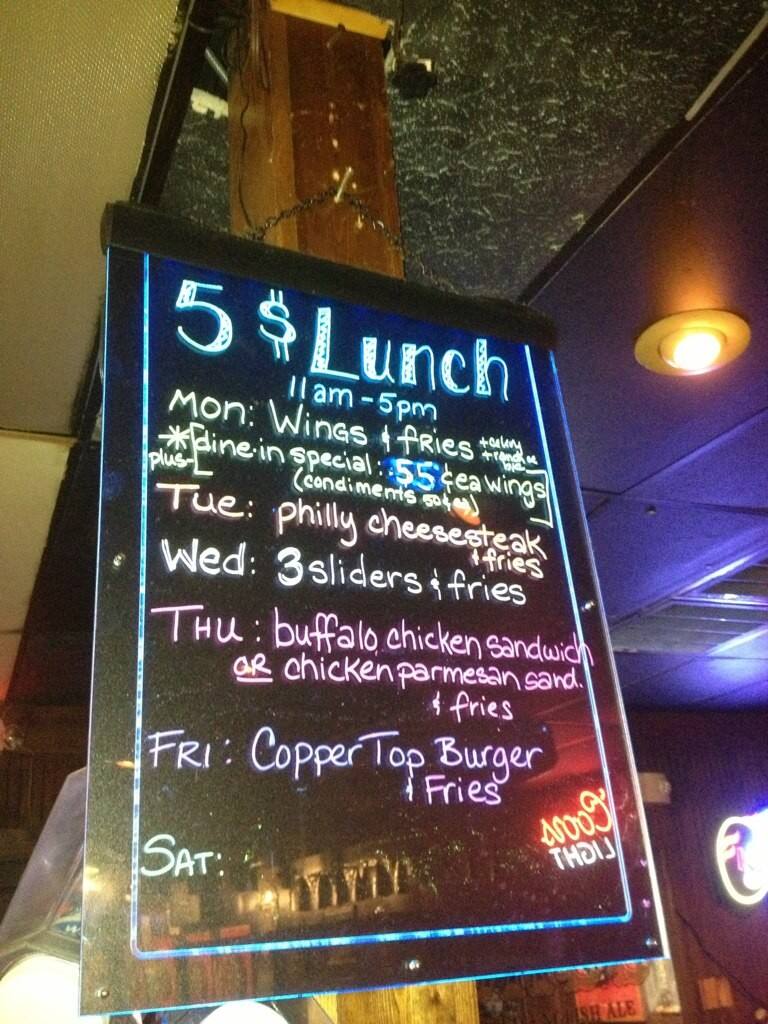 5 $ Lunch
11am - 5pm
Mon: Wings & fries + celery
+ ranch or
*[dine-in special: 55¢ ea wings]
plus- (condiments 50¢ ea)
Tue: philly cheesesteak
& fries
Wed: 3 sliders & fries
Thu: buffalo chicken sandwich
OR chicken parmesan sand.
& fries
Fri: CopperTop Burger
& Fries
Coors
LIGHT
Sat:
ISH ALE